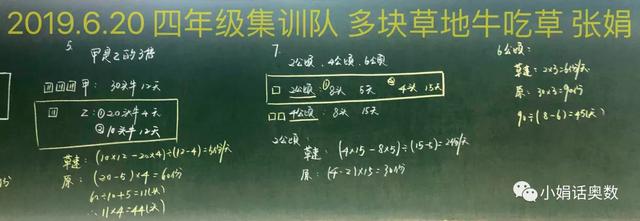 2019.6.20 四年级集训队 多块草地牛吃草 张娟
5.
甲是乙的3倍
甲: 30头牛 12天
乙: ①20头牛 4天
②10头牛 12天
草速: (10×12-20×4)÷(12-4)=5份/天
原: (20-5)×4=60份
60÷10+5=11(头)
∴ 11×4=44(头)
7.
2公顷, 4公顷, 6公顷
2公顷: ①8头 5天 ②4头 15天
4公顷: 8头 15天
2公顷:
草速: (4×15-8×5)÷(15-5)=2份/天
原: (4-2)×15=30份
6公顷:
草速: 2×3=6份/天
原: 30×3=90份
90÷(8-6)=45(天)
份
小娟话奥数